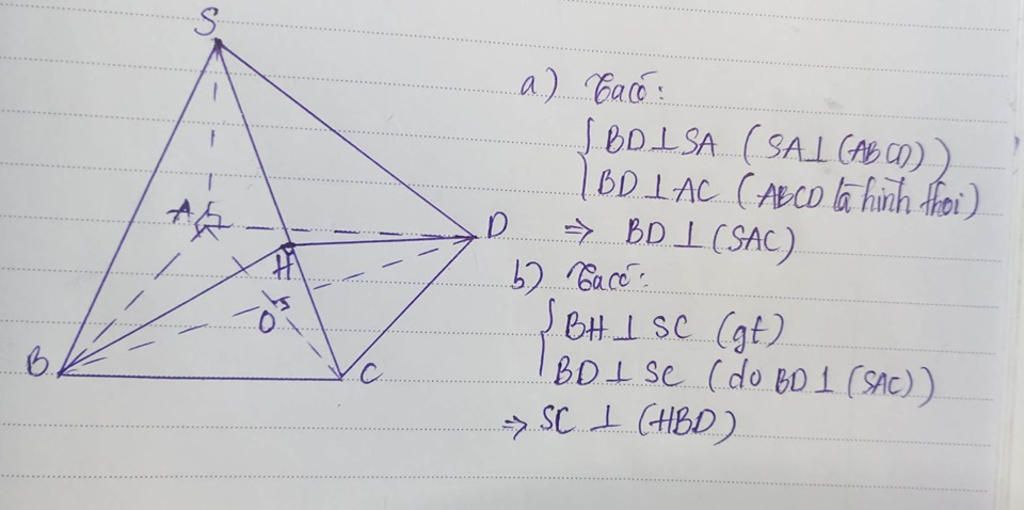 S
A
D
H
O
B
C
a) Ta có:
{ BD ⊥ SA (SA ⊥ (ABCD))
BD ⊥ AC (ABCD là hình thoi)
⇒ BD ⊥ (SAC)
b) Ta có:
{ BH ⊥ SC (gt)
BD ⊥ SC (do BD ⊥ (SAC))
⇒ SC ⊥ (HBD)